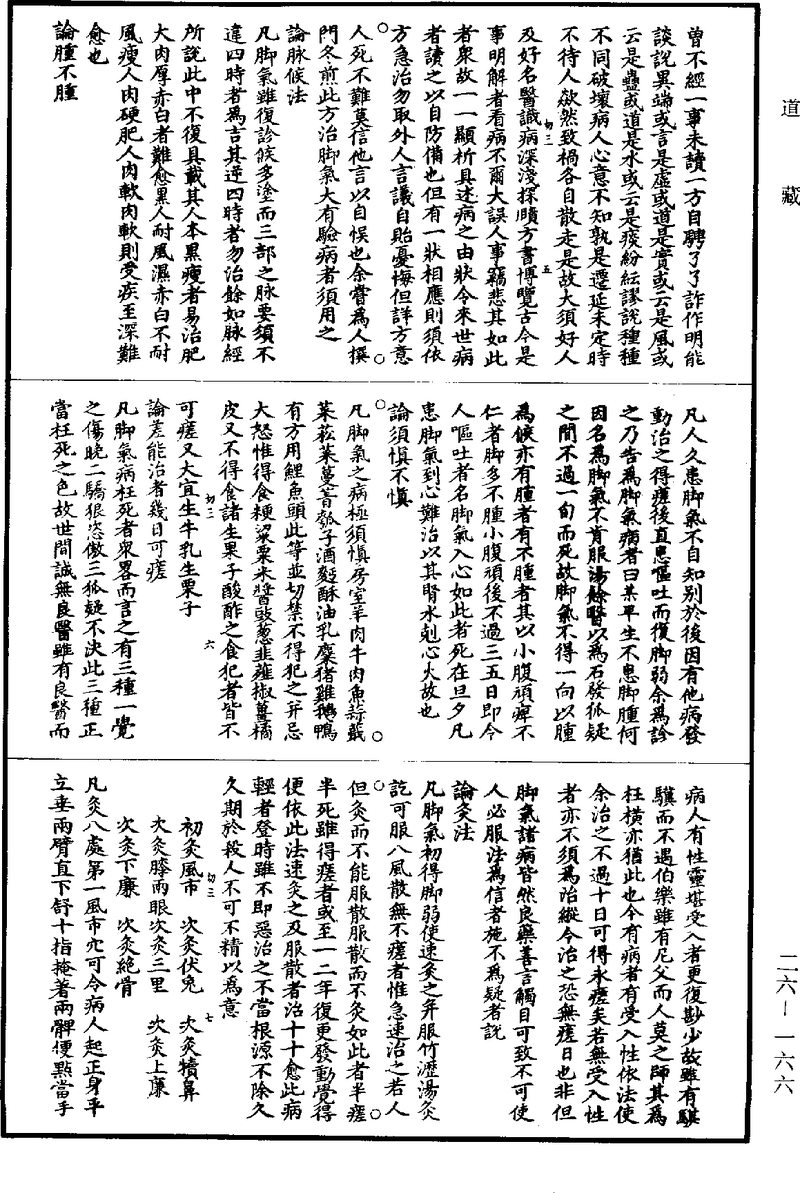 道藏
曾不經一事未讀一方自騁了了詐作明能
談說異端或言是虛或道是實或云是風或
云是蠱或道是水或云是痰紛紜謬說種種
不同破壞病人心意不知孰是遷延未定時
不待人欻然致禍各自散走是故大須好人
切三
五
及好名醫識病深淺探賾方書博覽古今是
事明解者看病不爾大誤人事竊悲其如此
者衆故一一顯析具述病之由狀令來世病
者讀之以自防備也但有一狀相應則須依
方急治勿取外人言議自貽憂悔但詳方意
人死不難莫信他言以自悞也余嘗爲人撰
門冬煎此方治脚氣大有驗病者須用之
論脉候法
凡脚氣雖復診候多塗而三部之脉要須不
違四時者爲吉其逆四時者勿治餘如脉經
所說此中不復具載其人本黑瘦者易治肥
大肉厚赤白者難愈黑人耐風濕赤白不耐
風瘦人肉硬肥人肉軟肉軟則受疾至深難
愈也
論腫不腫
凡人久患脚氣不自知別於後因有他病發
動治之得瘥後直患嘔吐而復脚弱余爲診
之乃告爲脚氣病者曰某平生不患脚腫何
因名爲脚氣不肯服湯餘醫以爲石發狐疑
之間不過一旬而死故脚氣不得一向以腫
爲候亦有腫者有不腫者其以小腹頑痺不
仁者脚多不腫小腹頑後不過三五日即令
人嘔吐者名脚氣入心如此者死在旦夕凡
患脚氣到心難治以其腎水剋心火故也
論須慎不慎
凡脚氣之病極須慎房室羊肉牛肉魚蒜蕺
菜菘菜蔓菁瓠子酒麪酥油乳麋猪雞鵝鴨
有方用鯉魚頭此等並切禁不得犯之并忌
大怒惟得食粳粱粟米醬豉葱韭薤椒薑橘
皮又不得食諸生果子酸酢之食犯者皆不
切三
六
可瘥又大宜生牛乳生栗子
論差能治者幾日可瘥
凡脚氣病枉死者衆畧而言之有三種一覺
之傷晚二驕狠恣傲三狐疑不決此三種正
當枉死之色故世間誠無良醫雖有良醫而
病人有性靈堪受入者更復尠少故雖有騏
驥而不遇伯樂雖有尼父而人莫之師其爲
枉橫亦猶此也今有病者有受入性依法使
余治之不過十日可得永瘥矣若無受入性
者亦不須爲治縱令治之恐無瘥日也非但
脚氣諸病皆然良藥善言觸目可致不可使
人必服法爲信者施不爲疑者說
論灸法
凡脚氣初得脚弱使速灸之并服竹瀝湯灸
訖可服八風散無不瘥者惟急速治之若人
但灸而不能服散服散而不灸如此者半瘥
半死雖得瘥者或至一二年復更發動覺得
便依此法速灸之及服散者治十十愈此病
輕者登時雖不即惡治之不當根源不除久
久期於殺人不可不精以爲意
切三
七
初灸風市　次灸伏兔　次灸犢鼻
次灸膝兩眼次灸三里　次灸上廉
次灸下廉　次灸絶骨
凡灸八處第一風市穴可令病人起正身平
立垂兩臂直下舒十指掩著兩髀便點當手
二六—一六六